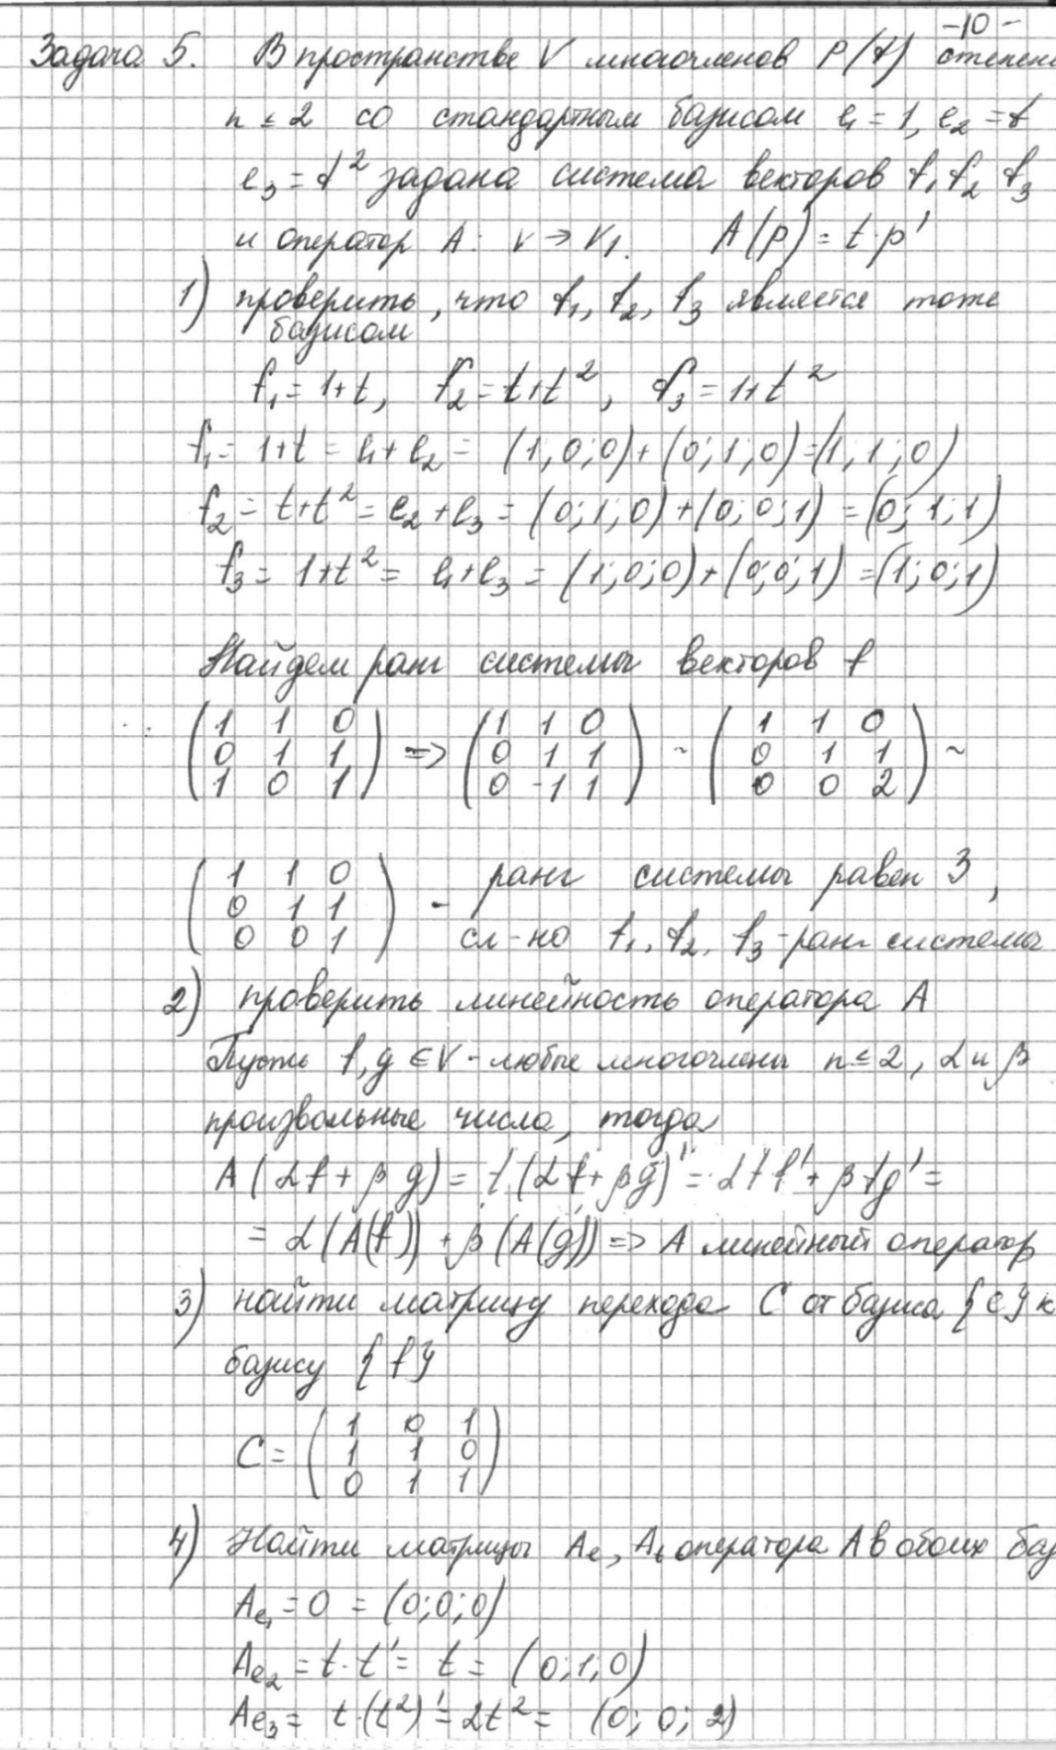 -10-
Задача 5. В пространстве V многочленов P(t) степени
n ≤ 2 со стандартным базисом e₁ = 1, e₂ = t
e₃ = t² задана система векторов f₁ f₂ f₃
и оператор A: V → V₁. A(p) = t·p'
1) проверить, что f₁, f₂, f₃ является тоже
базисом
f₁ = 1+t, f₂ = t+t², f₃ = 1+t²
f₁ = 1+t = e₁+e₂ = (1;0;0)+(0;1;0)=(1;1;0)
f₂ = t+t² = e₂+e₃ = (0;1;0)+(0;0;1) = (0;1;1)
f₃ = 1+t² = e₁+e₃ = (1;0;0)+(0;0;1) = (1;0;1)
Найдем ранг системы векторов f
(1 1 0) (1 1 0) (1 1 0)
(0 1 1) => (0 1 1) ~ (0 1 1) ~
(1 0 1) (0 -1 1) (0 0 2)
(1 1 0) ранг системы равен 3,
(0 1 1) -
(0 0 1) сл-но f₁, f₂, f₃ - ранг системы
2) проверить линейность оператора A
Пусть f, g ∈ V - любые многочлены n ≤ 2, α и β
произвольные числа, тогда
A(αf + βg) = t(αf + βg)' = αtf' + βtg' =
= α(A(f)) + β(A(g)) => A линейный оператор
3) найти матрицу перехода C от базиса {e} к
базису {f}
(1 0 1)
C = (1 1 0)
(0 1 1)
4) Найти матрицы Ae, Af оператора A в обоих баз
Ae₁ = 0 = (0;0;0)
Ae₂ = t·t' = t = (0;1;0)
Ae₃ = t·(t²)' = 2t² = (0;0;2)